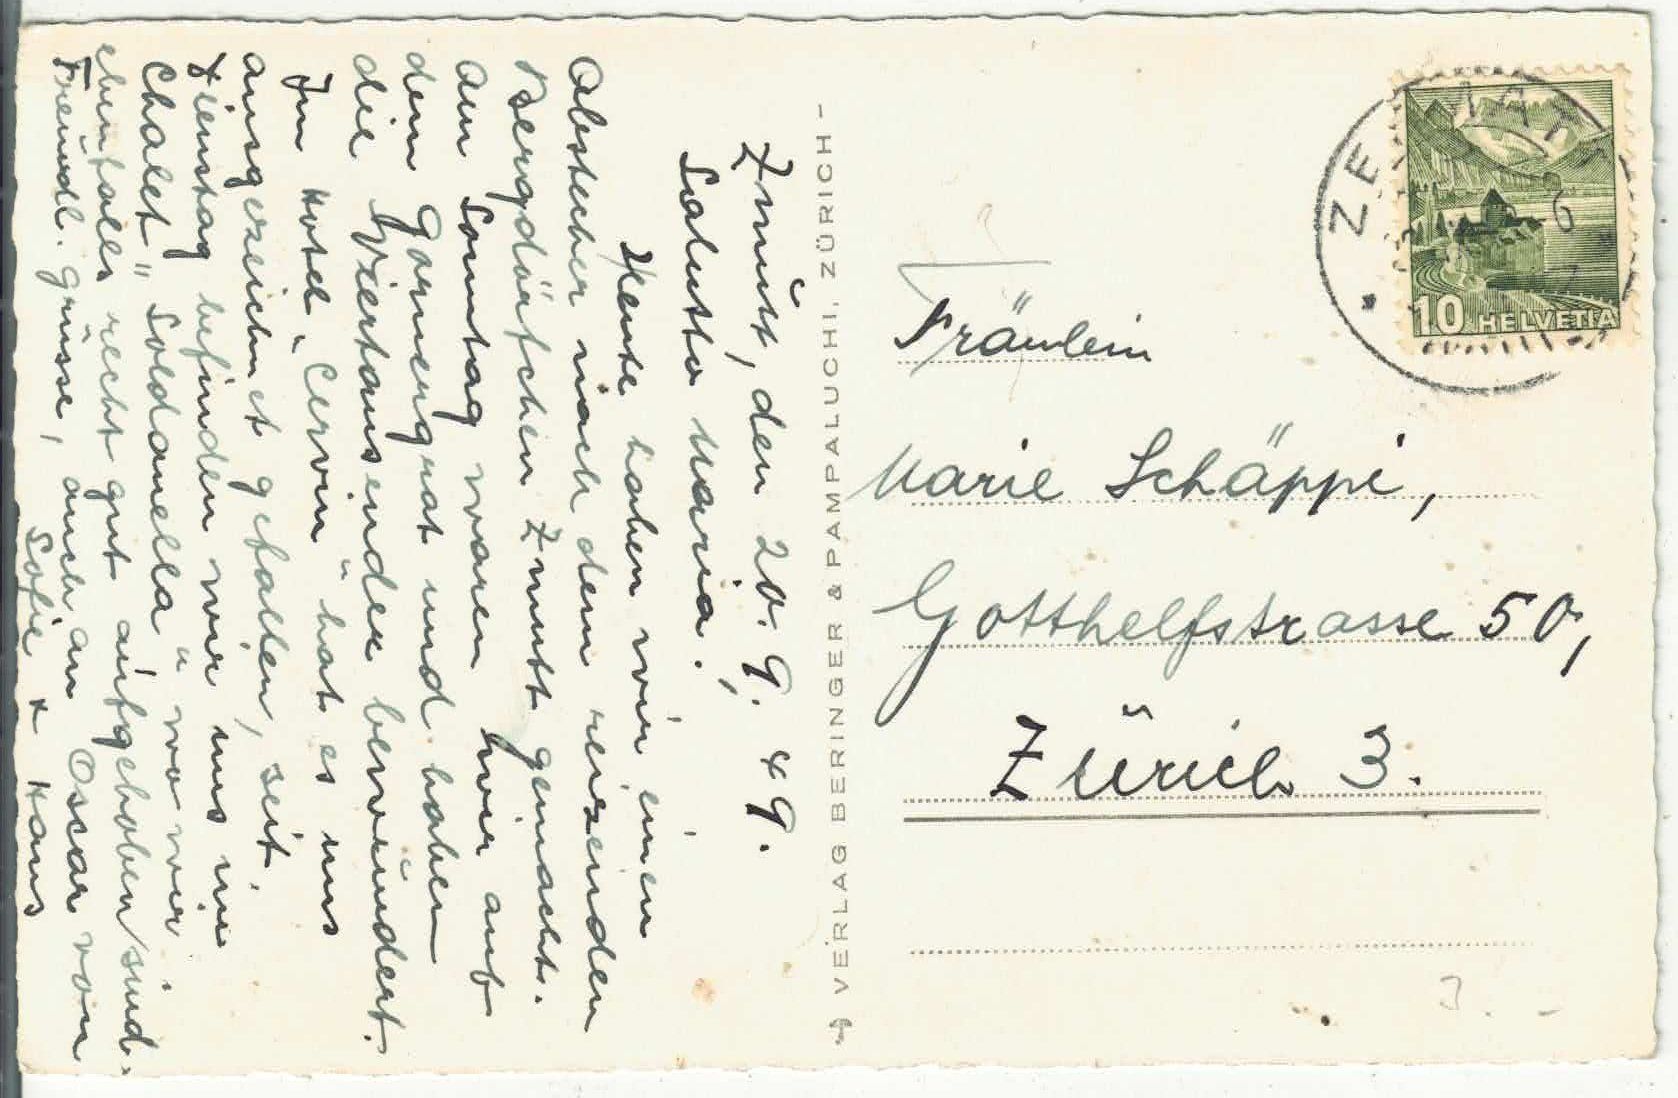 Zmŭtt, den 20. 9. 49.
Salŭtto Maria!
Heute haben wir einen
Abstecher nach dem reizenden
Bergdörfchen Zmutt gemacht.
Am Sonntag waren wir auf
dem Gornergrat und haben
die Viertausender bewŭndert.
Im Hotel "Cervin" hat es uns
ausgezeichnet gefallen, seit
Dienstag befinden wir uns im
Chalet "Soldanella" wo wir
ebenfalls recht gut aufgehoben sind.
Freundl. Grüsse, auch an Oscar von
Sofie & Hans
VERLAG BERINGER & PAMPALUCHI, ZÜRICH
ZERMATT
10 HELVETIA
Fräulein
Marie Schäppi,
Gotthelfstrasse 50,
Zürich 3.